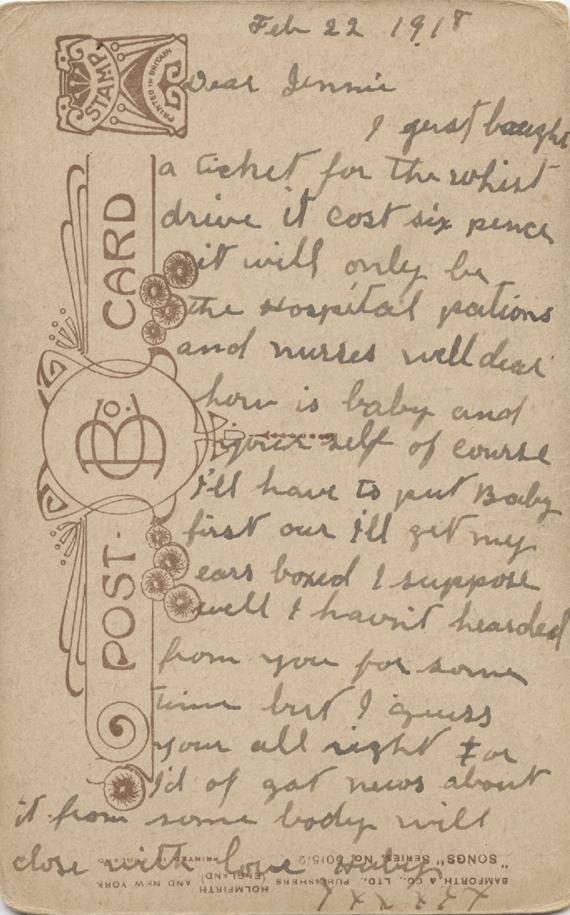 Feb 22 1918
Dear Jennie
I gust baught
a ticket for the whist
drive it cost six pence
it will only be
the Hospital pations
and nurses well dear
how is baby and
your self of course
I'll have to put Baby
first our I'll get my
ears boxed I suppose
well I havn't hearded
from you for some
time but I guess
your all right For
I'd of got news about
it from some body will
close with love Huby
xxxxxx
STAMP
PRINTED IN BRITAIN
POST-CARD
B. & Co.
BAMFORTH & CO., LTD., PUBLISHERS (ENGLAND) HOLMFIRTH AND NEW YORK
"SONGS" SERIES No. 5015/2 PRINTED IN ENGLAND